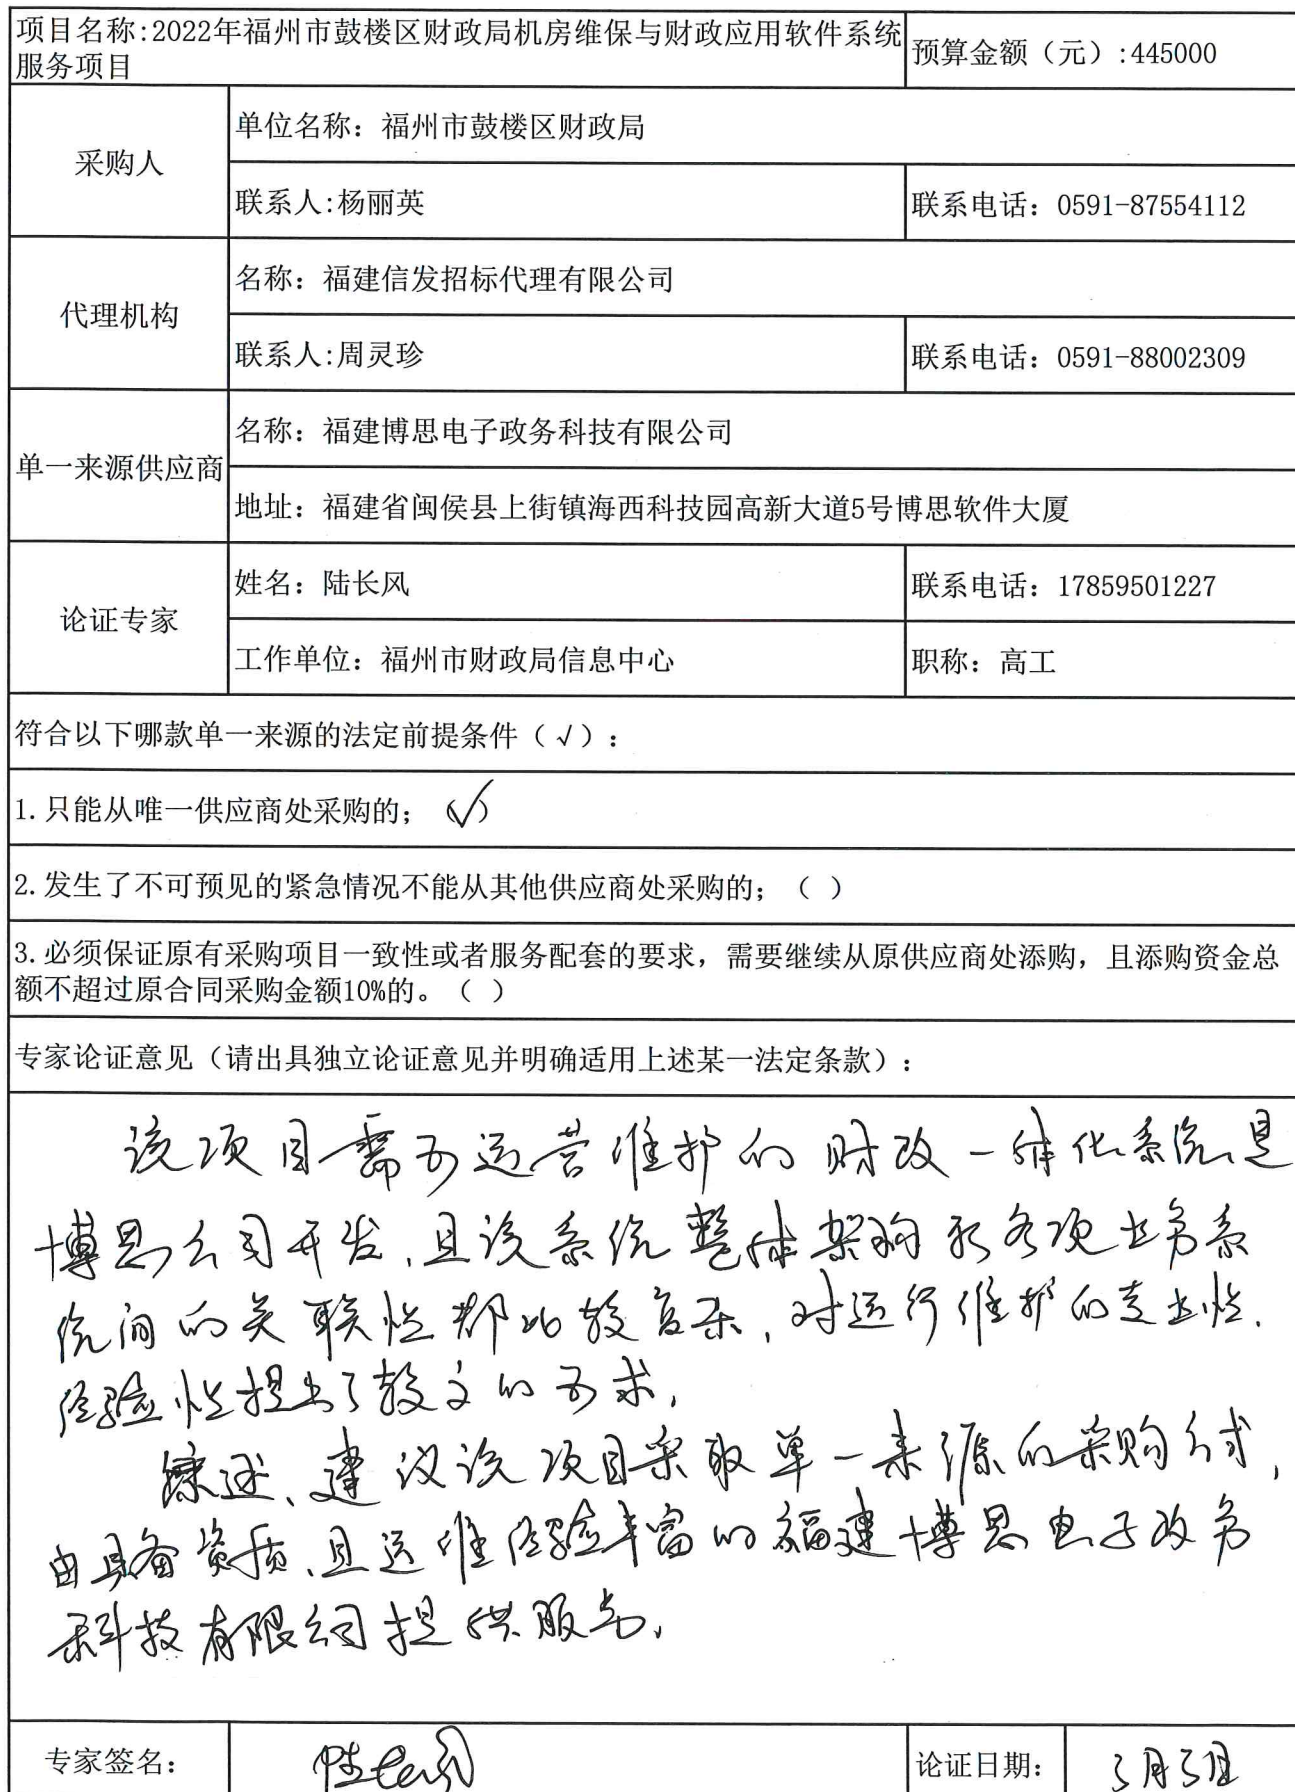 项目名称:2022年福州市鼓楼区财政局机房维保与财政应用软件系统
服务项目
预算金额（元）:445000
采购人
单位名称：福州市鼓楼区财政局
联系人:杨丽英
联系电话：0591-87554112
代理机构
名称：福建信发招标代理有限公司
联系人:周灵珍
联系电话：0591-88002309
单一来源供应商
名称：福建博思电子政务科技有限公司
地址：福建省闽侯县上街镇海西科技园高新大道5号博思软件大厦
论证专家
姓名：陆长风
联系电话：17859501227
工作单位：福州市财政局信息中心
职称：高工
符合以下哪款单一来源的法定前提条件（√）：
1.只能从唯一供应商处采购的；（√）
2.发生了不可预见的紧急情况不能从其他供应商处采购的；（ ）
3.必须保证原有采购项目一致性或者服务配套的要求，需要继续从原供应商处添购，且添购资金总
额不超过原合同采购金额10%的。（ ）
专家论证意见（请出具独立论证意见并明确适用上述某一法定条款）：
该项目需要运营维护的财政一体化系统是
博思公司开发,且该系统整体架构和各项业务系
统间的关联性都比较复杂,对运行维护的专业性、
经验性提出了较高的要求,
综述、建议该项目采取单一来源的采购方式,
由具备资质、且运维经验丰富的福建博思电子政务
科技有限公司提供服务,
专家签名：
陆长风
论证日期：
3月3日